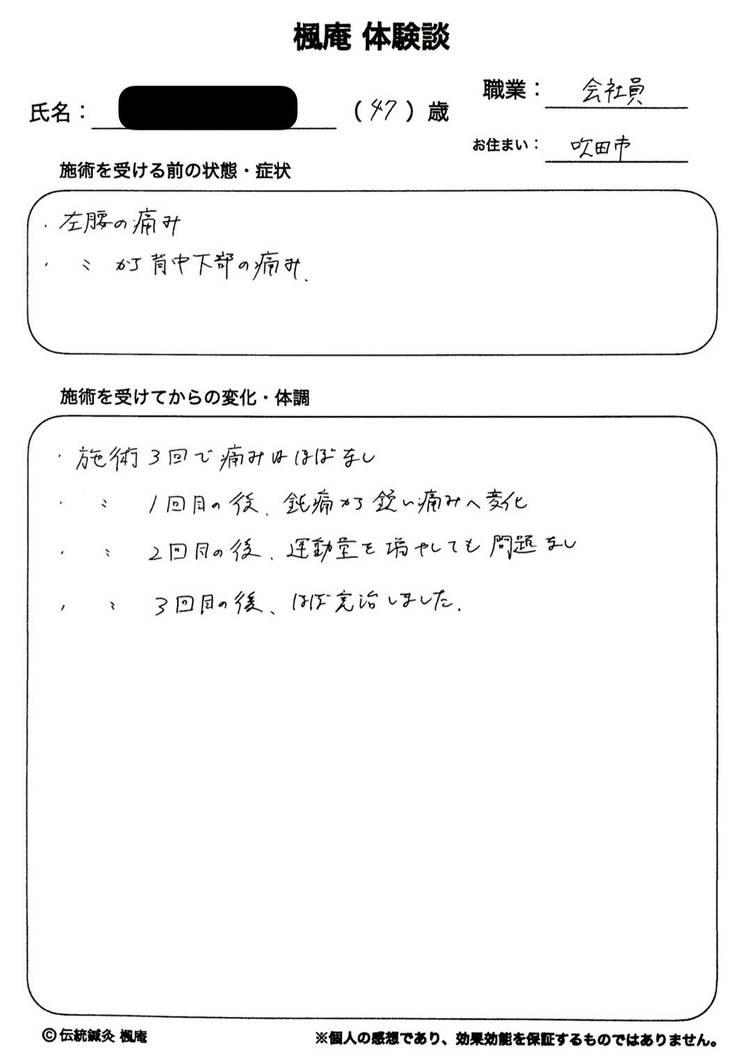 楓庵 体験談
職業： 会社員
氏名： （47）歳
お住まい： 吹田市
施術を受ける前の状態・症状
・左腰の痛み
・〃 から背中下部の痛み.
施術を受けてからの変化・体調
・施術3回で痛みはほぼなし
・〃 1回目の後、鈍痛から鋭い痛みへ変化
・〃 2回目の後、運動量を増やしても問題なし
・〃 3回目の後、ほぼ完治しました.
©伝統鍼灸 楓庵
※個人の感想であり、効果効能を保証するものではありません。